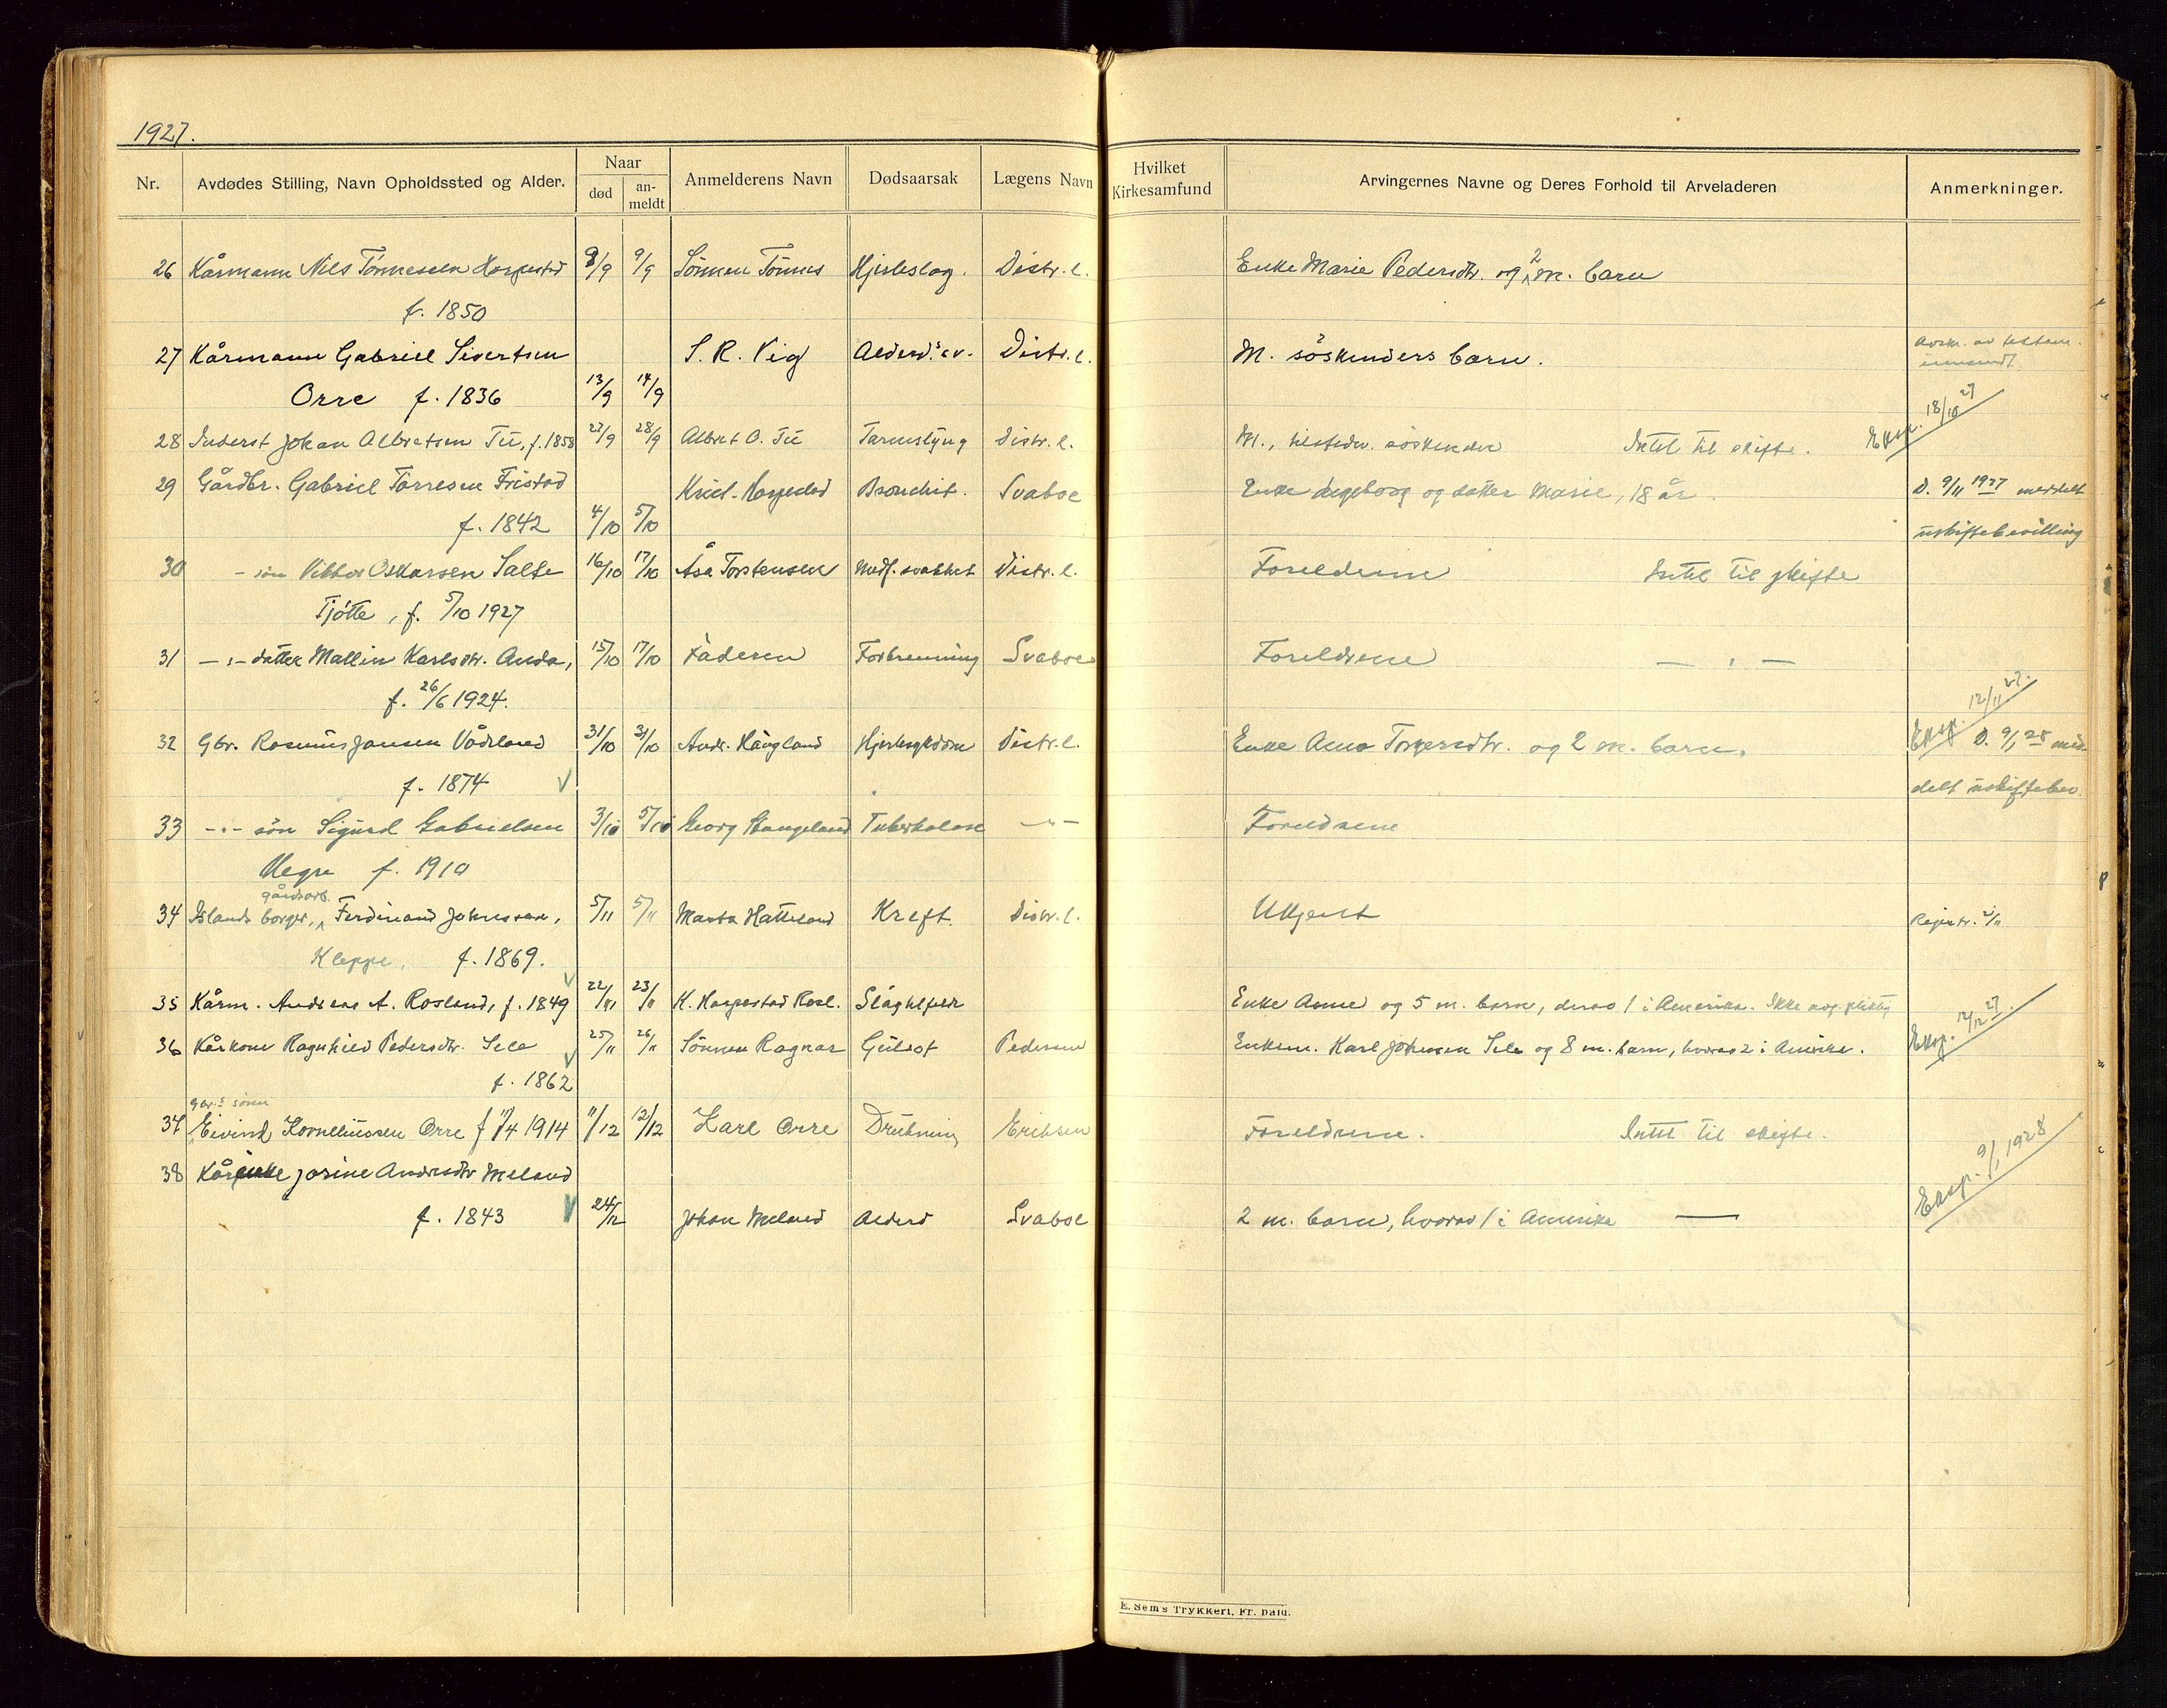 1927.
Nr. Avdødes Stilling, Navn Opholdssted og Alder. Naar død an-meldt Anmelderens Navn Dødsaarsak Lægens Navn Hvilket Kirkesamfund Arvingernes Navne og Deres Forhold til Arveladeren Anmerkninger.
26 Kårmann Nils Tønnessen Harpestad 8/9 9/9 Sønnen Tønnes Hjerteslag. Distr.l. Enke Marie Pedersdtr. og 2 m. barn
f. 1850
27 Kårmann Gabriel Sivertsen S. R. Vig Alderd.s sv. Distr.l. M. søskenders barn. Avskr. av testam. innsendt.
Orre f. 1836 13/9 14/9
28 Inderst Johan Albretsen Tu, f. 1858 27/9 28/9 Albret O. Tu Tarmslyng Distr. l. M., søskender Intet til skifte. Eksp. 18/10 27
29 Gårdbr. Gabriel Tørresen Fristad Harpestad Bronchit. Svaboe Enke Ingeborg og datter Marie, 18 år. D. 9/11 1927 meddelt
f. 1842 4/10 5/10 uskiftebevilling
30 - søn Viktor Oskarsen Salte 16/10 17/10 Åsa Torstensen Medf. svakhet Distr. l. Foreldrene Intet til skifte
Tjøtte, f. 5/10 1927
31 -"- datter Mallin Karlsdtr. Anda, 15/10 17/10 Faderen Forbrenning Svaboe Foreldrene - " -
f. 26/6 1924.
32 Gbr. Rasmus Jansen Vådland 31/10 31/10 Andr. Håugland Hjertesykdom Distr.l. Enke Anna Torgersdtr. og 2 m. barn. Eksp. 12/11 27. D. 9/1 28 med-
f. 1874 delt uskiftebev.
33 -"- søn Sigurd Gabrielsen 3/10 5/10 Georg Stangeland Tuberkulose -"- Foreldrene
Hegre f. 1910
gårdsarb.
34 Islands borger, Ferdinand Johnsson, 5/11 5/11 Marta Hatteland Kreft. Distr. l. Ukjent Registr. /11
Kleppe, f. 1869.
35 Kårm. Andreas A. Rosland, f. 1849 22/11 23/11 K. Harpestad Rosl. Slagtilfelle Enke Anne og 5 m. barn, derav 1 i Amerika. Ikke avg. pliktig
36 Kårkone Ragnhild Pedersdtr. Sele 25/11 26/11 Sønnen Ragnar Gulsot Pedersen Enkem. Karl Johnsen Sele og 8 m. barn, hvorav 2 i Amerika. Eksp. 12/12 27.
f. 1862
gbr.s sønn
37 Eivind Korneliussen Orre f 11/4 1914 11/12 12/12 Karl Orre Drukning Eriksen Foreldrene. Intet til skifte.
38 Kårenke Josine Andresdtr Meland
f. 1843 24/12 Johan Meland Alderd Svaboe 2 m. barn, hvorav 1 i Amerika — Eksp. 9/1 1928
E. Sem's Trykkeri, Fr. hald.